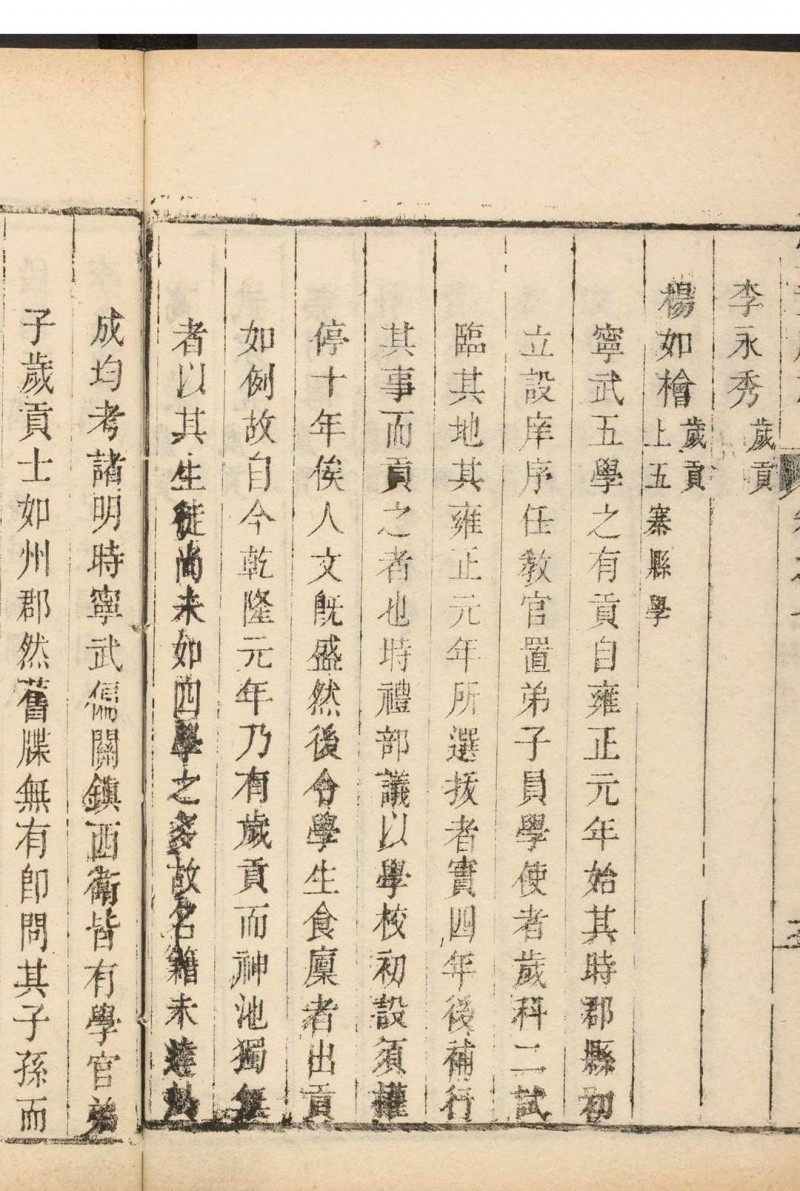 李永秀歲貢
楊如檜歲貢上五寨縣學
寧武五學之有貢自雍正元年始其時郡縣初
立設庠序任教官置弟子員學使者歲科二試
臨其地其雍正元年所選拔者實四年後補行
其事而貢之者也時禮部議以學校初設須權
停十年俟人文旣盛然後令學生食廩者出貢
如例故自今乾隆元年乃有歲貢而神池獨無
者以其生徒尚未如四學之多故名籍未達
成均考諸明時寧武偏關鎮西衛皆有學官弟
子歲貢士如州郡然舊牒無有即問其子孫而